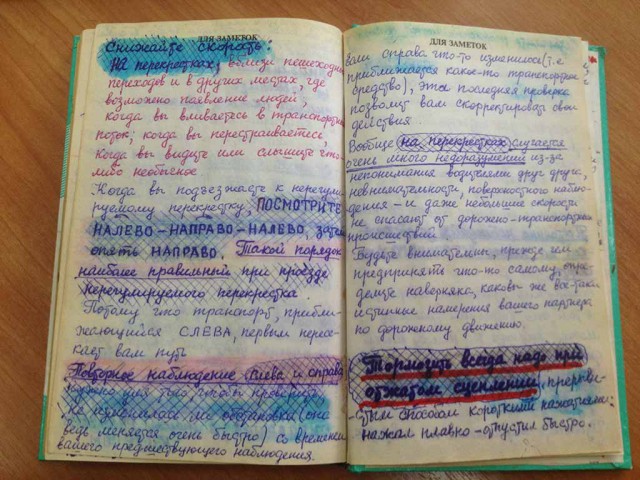 ДЛЯ ЗАМЕТОК
Снижайте скорость:
на перекрестках, вблизи пешеходных
переходов и в других местах, где
возможно появление людей,
когда вы вливаетесь в транспортный
поток; когда вы перестраиваетесь,
когда вы видите или слышите что-
либо необычное
Когда вы подъезжаете к нерегули-
руемому перекрестку, ПОСМОТРИТЕ
НАЛЕВО-НАПРАВО-НАЛЕВО, затем
опять НАПРАВО. Такой порядок
наиболее правильный при проезде
нерегулируемого перекрестка
Потому что транспорт, прибли-
жающийся СЛЕВА, первым пересе-
кает вам путь
Повторное наблюдение слева и справа
нужно для того, чтобы проверить,
не изменилась ли обстановка (она
ведь меняется очень быстро) со времени
вашего предшествующего наблюдения.
ДЛЯ ЗАМЕТОК
вам справа что-то изменилось (т.е
приближается какое-то транспортное
средство), эта последняя проверка
позволит вам скорректировать свои
действия
Вообще на перекрестках случается
очень много недоразумений из-за
непонимания водителями друг друга,
невнимательности, поверхностного наблю-
дения - и даже небольшие скорости
не спасают от дорожно-транспортных
происшествий.
Будьте внимательны, прежде чем
предпринять что-то самому, опре-
делите наверняка, каковы же все-таки
истинные намерения вашего партнера
по дорожному движению.
Тормозить всегда надо при
отжатом сцеплении, прерыви-
стым способом короткими нажатиями:
нажал плавно - отпустил быстро.